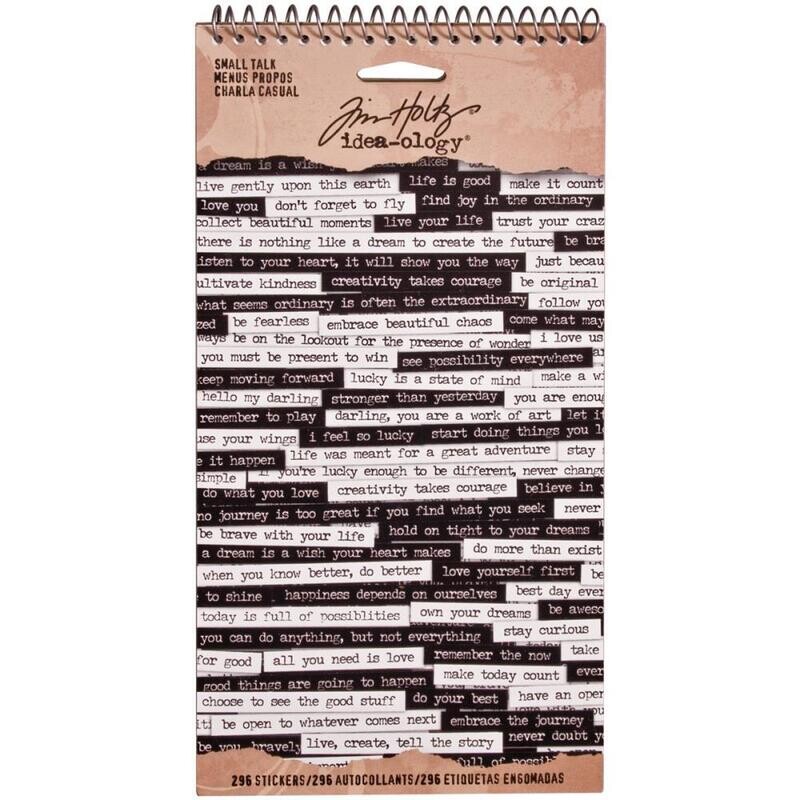 SMALL TALK
MENUS PROPOS
CHARLA CASUAL
Tim Holtz
idea-ology®
a dream is a wish heart makes
live gently upon this earth life is good make it count
love you don't forget to fly find joy in the ordinary
collect beautiful moments live your life trust your craz
there is nothing like a dream to create the future be bra
isten to your heart, it will show you the way just becau
ultivate kindness creativity takes courage be original
what seems ordinary is often the extraordinary follow you
zed be fearless embrace beautiful chaos come what may
ways be on the lookout for the presence of wonder i love us
you must be present to win see possibility everywhere
keep moving forward lucky is a state of mind make a wi
hello my darling stronger than yesterday you are enoug
remember to play darling, you are a work of art let it
use your wings i feel so lucky start doing things you lo
e it happen life was meant for a great adventure stay s
simple if you're lucky enough to be different, never change
do what you love creativity takes courage believe in y
no journey is too great if you find what you seek never
be brave with your life hold on tight to your dreams
a dream is a wish your heart makes do more than exist
when you know better, do better love yourself first be
to shine happiness depends on ourselves best day ever
today is full of possiblities own your dreams be aweso
you can do anything, but not everything stay curious
for good all you need is love remember the now take
good things are going to happen make today count ever
choose to see the good stuff do your best have an open
it; be open to whatever comes next embrace the journey
be you, bravely live, create, tell the story never doubt yo
full of possib
296 STICKERS/296 AUTOCOLLANTS/296 ETIQUETAS ENGOMADAS